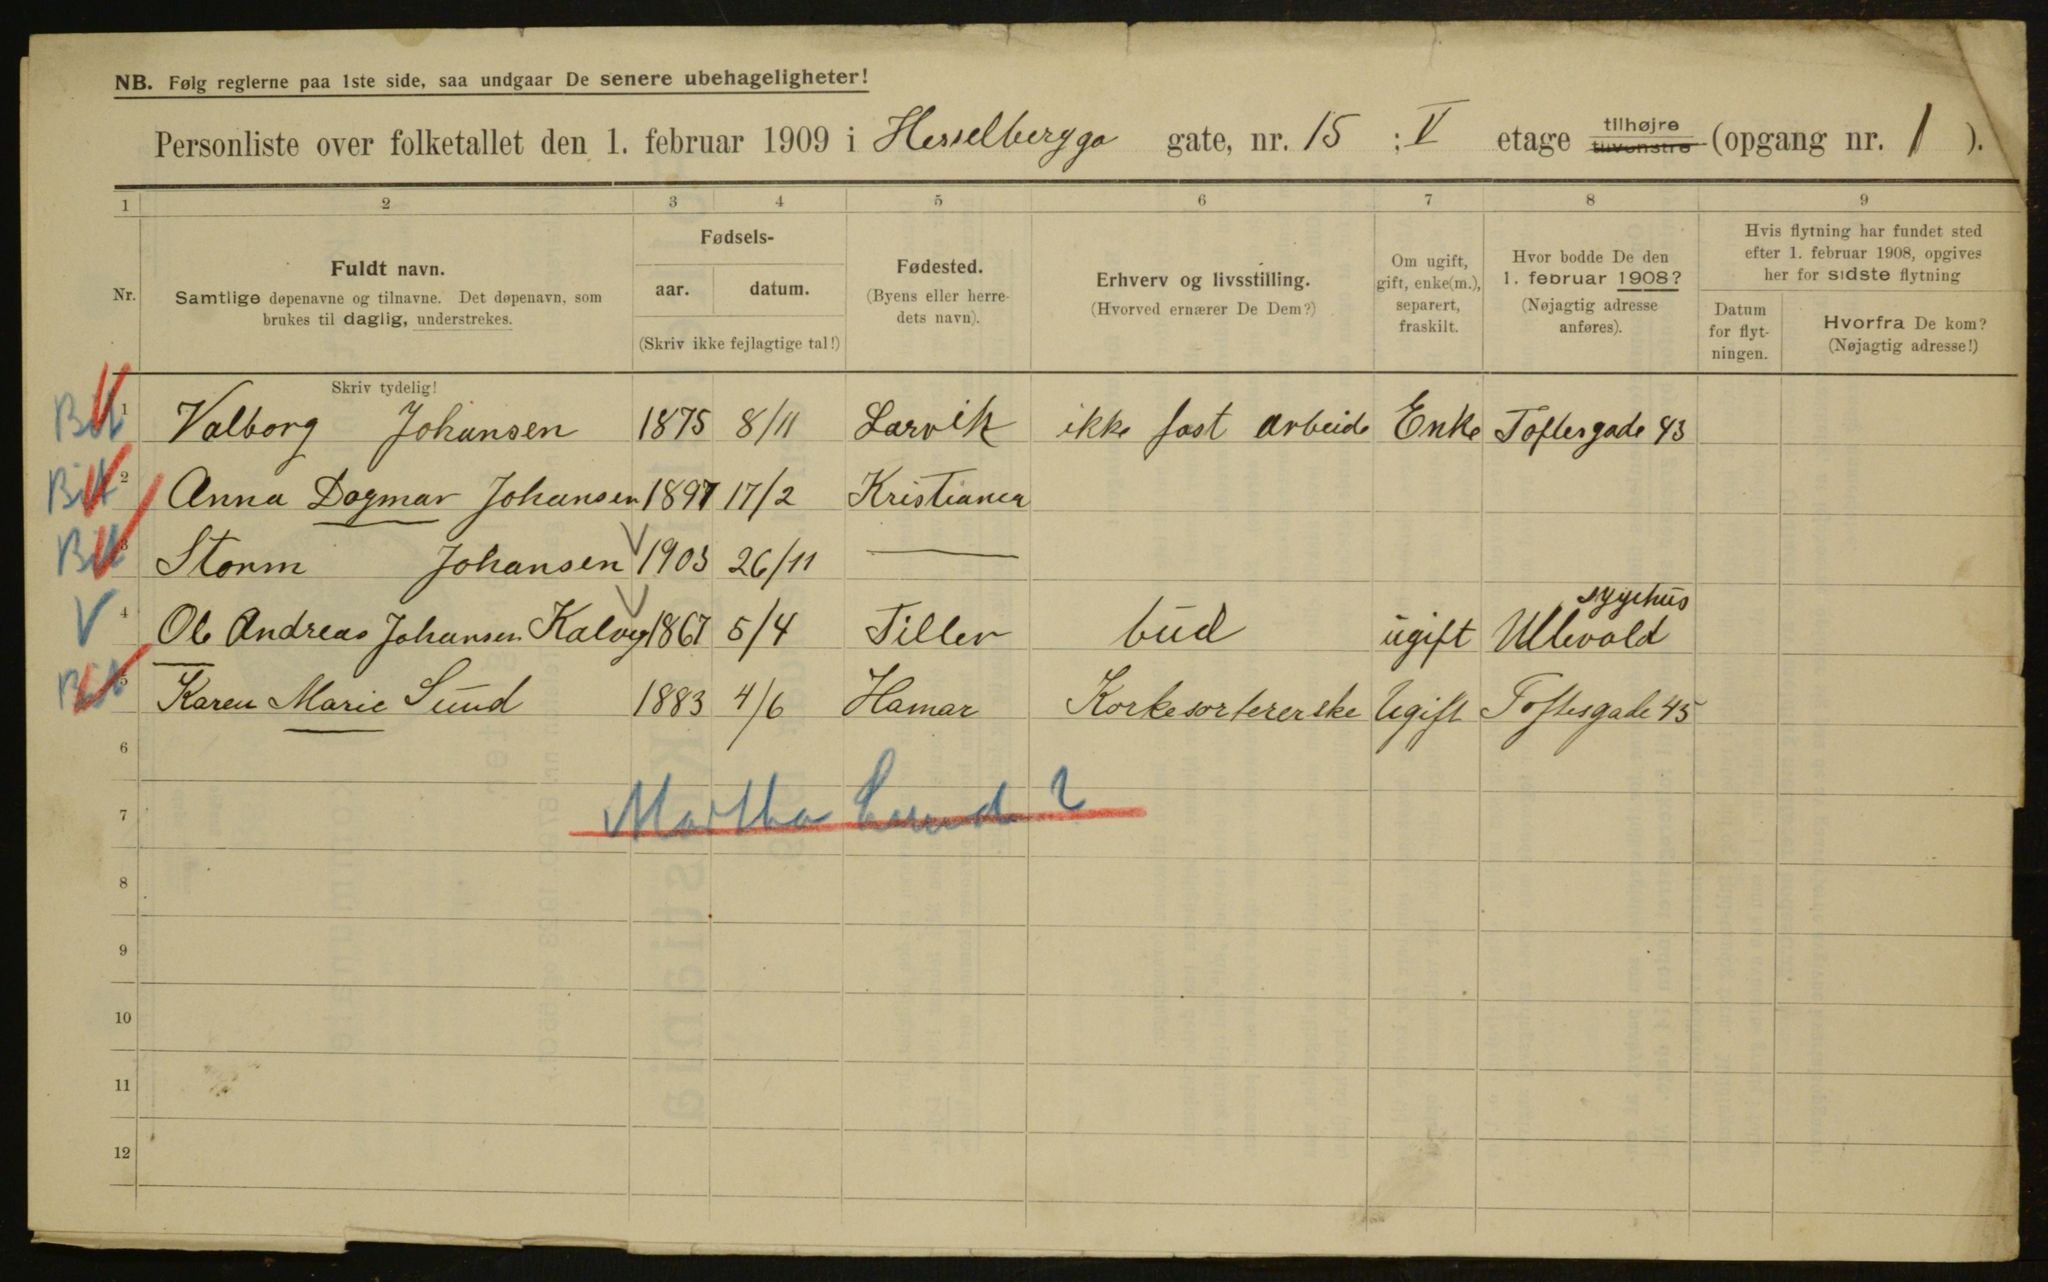 NB. Følg reglerne paa 1ste side, saa undgaar De senere ubehageligheter!
Personliste over folketallet den 1. februar 1909 i Hesselbergga gate, nr. 15 : V etage tilhøjre tilvenstre (opgang nr. 1 ).
1 2 3 4 5 6 7 8 9
Nr.
Fuldt navn.
Samtlige døpenavne og tilnavne. Det døpenavn, som
brukes til daglig, understrekes.
Fødsels-
aar. datum.
(Skriv ikke fejlagtige tal!)
Fødested.
(Byens eller herre-
dets navn).
Erhverv og livsstilling.
(Hvorved ernærer De Dem?)
Om ugift,
gift, enke(m.),
separert,
fraskilt.
Hvor bodde De den
1. februar 1908?
(Nøjagtig adresse
anføres).
Hvis flytning har fundet sted
efter 1. februar 1908, opgives
her for sidste flytning
Datum
for flyt-
ningen.
Hvorfra De kom?
(Nøjagtig adresse!)
Skriv tydelig!
1 Valborg Johansen 1875 8/11 Larvik ikke fast arbeide Enke Toftesgade 43
2 Anna Dagmar Johansen 1897 17/2 Kristiania
3 Storm Johansen 1903 26/11 —
4 Ole Andreas Johansen Kalvg 1867 5/4 Tiller bud ugift Ullevold sygehus
5 Karen Marie Sund 1883 4/6 Hamar Korkesortererske Ugift Toftesgade 45
6
7 Martha
8
9
10
11
12